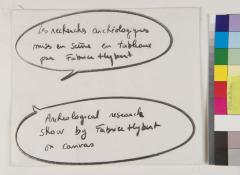 Les recherches archéologiques
mises en scène en tableaux
par Fabrice Hybert
Archeological research
show by Fabrice Hybert
on canvas